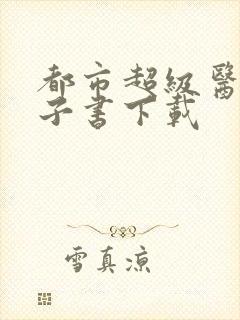 都市超級醫
子書下載
雪真涼